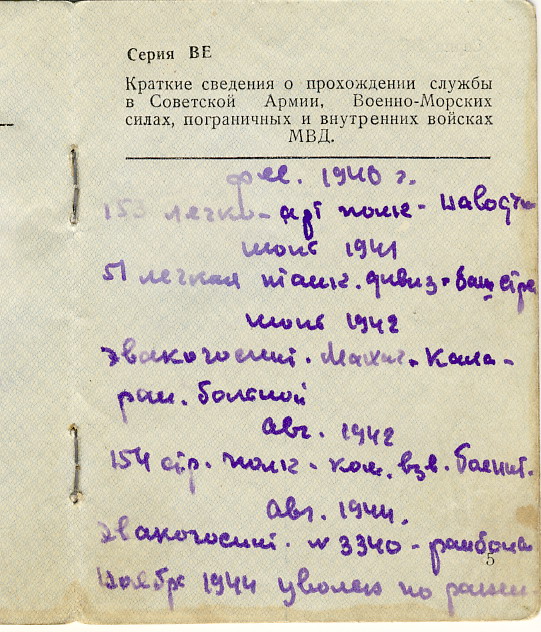 Серия ВЕ
Краткие сведения о прохождении службы
в Советской Армии, Военно-Морских
силах, пограничных и внутренних войсках
МВД.
1940 г.
153 легко-арт полк - наводчи
июнь 1941
51 легкая танк. дивиз - баш стре
июнь 1942
эвакогоспит. Махач-Кала -
ран. больной
авг. 1942
154 стр. полк - ком. взв.
авг. 1944.
эвакогоспит. № 3340 - ранбольн
5
ноябрь 1944 уволен по ранен